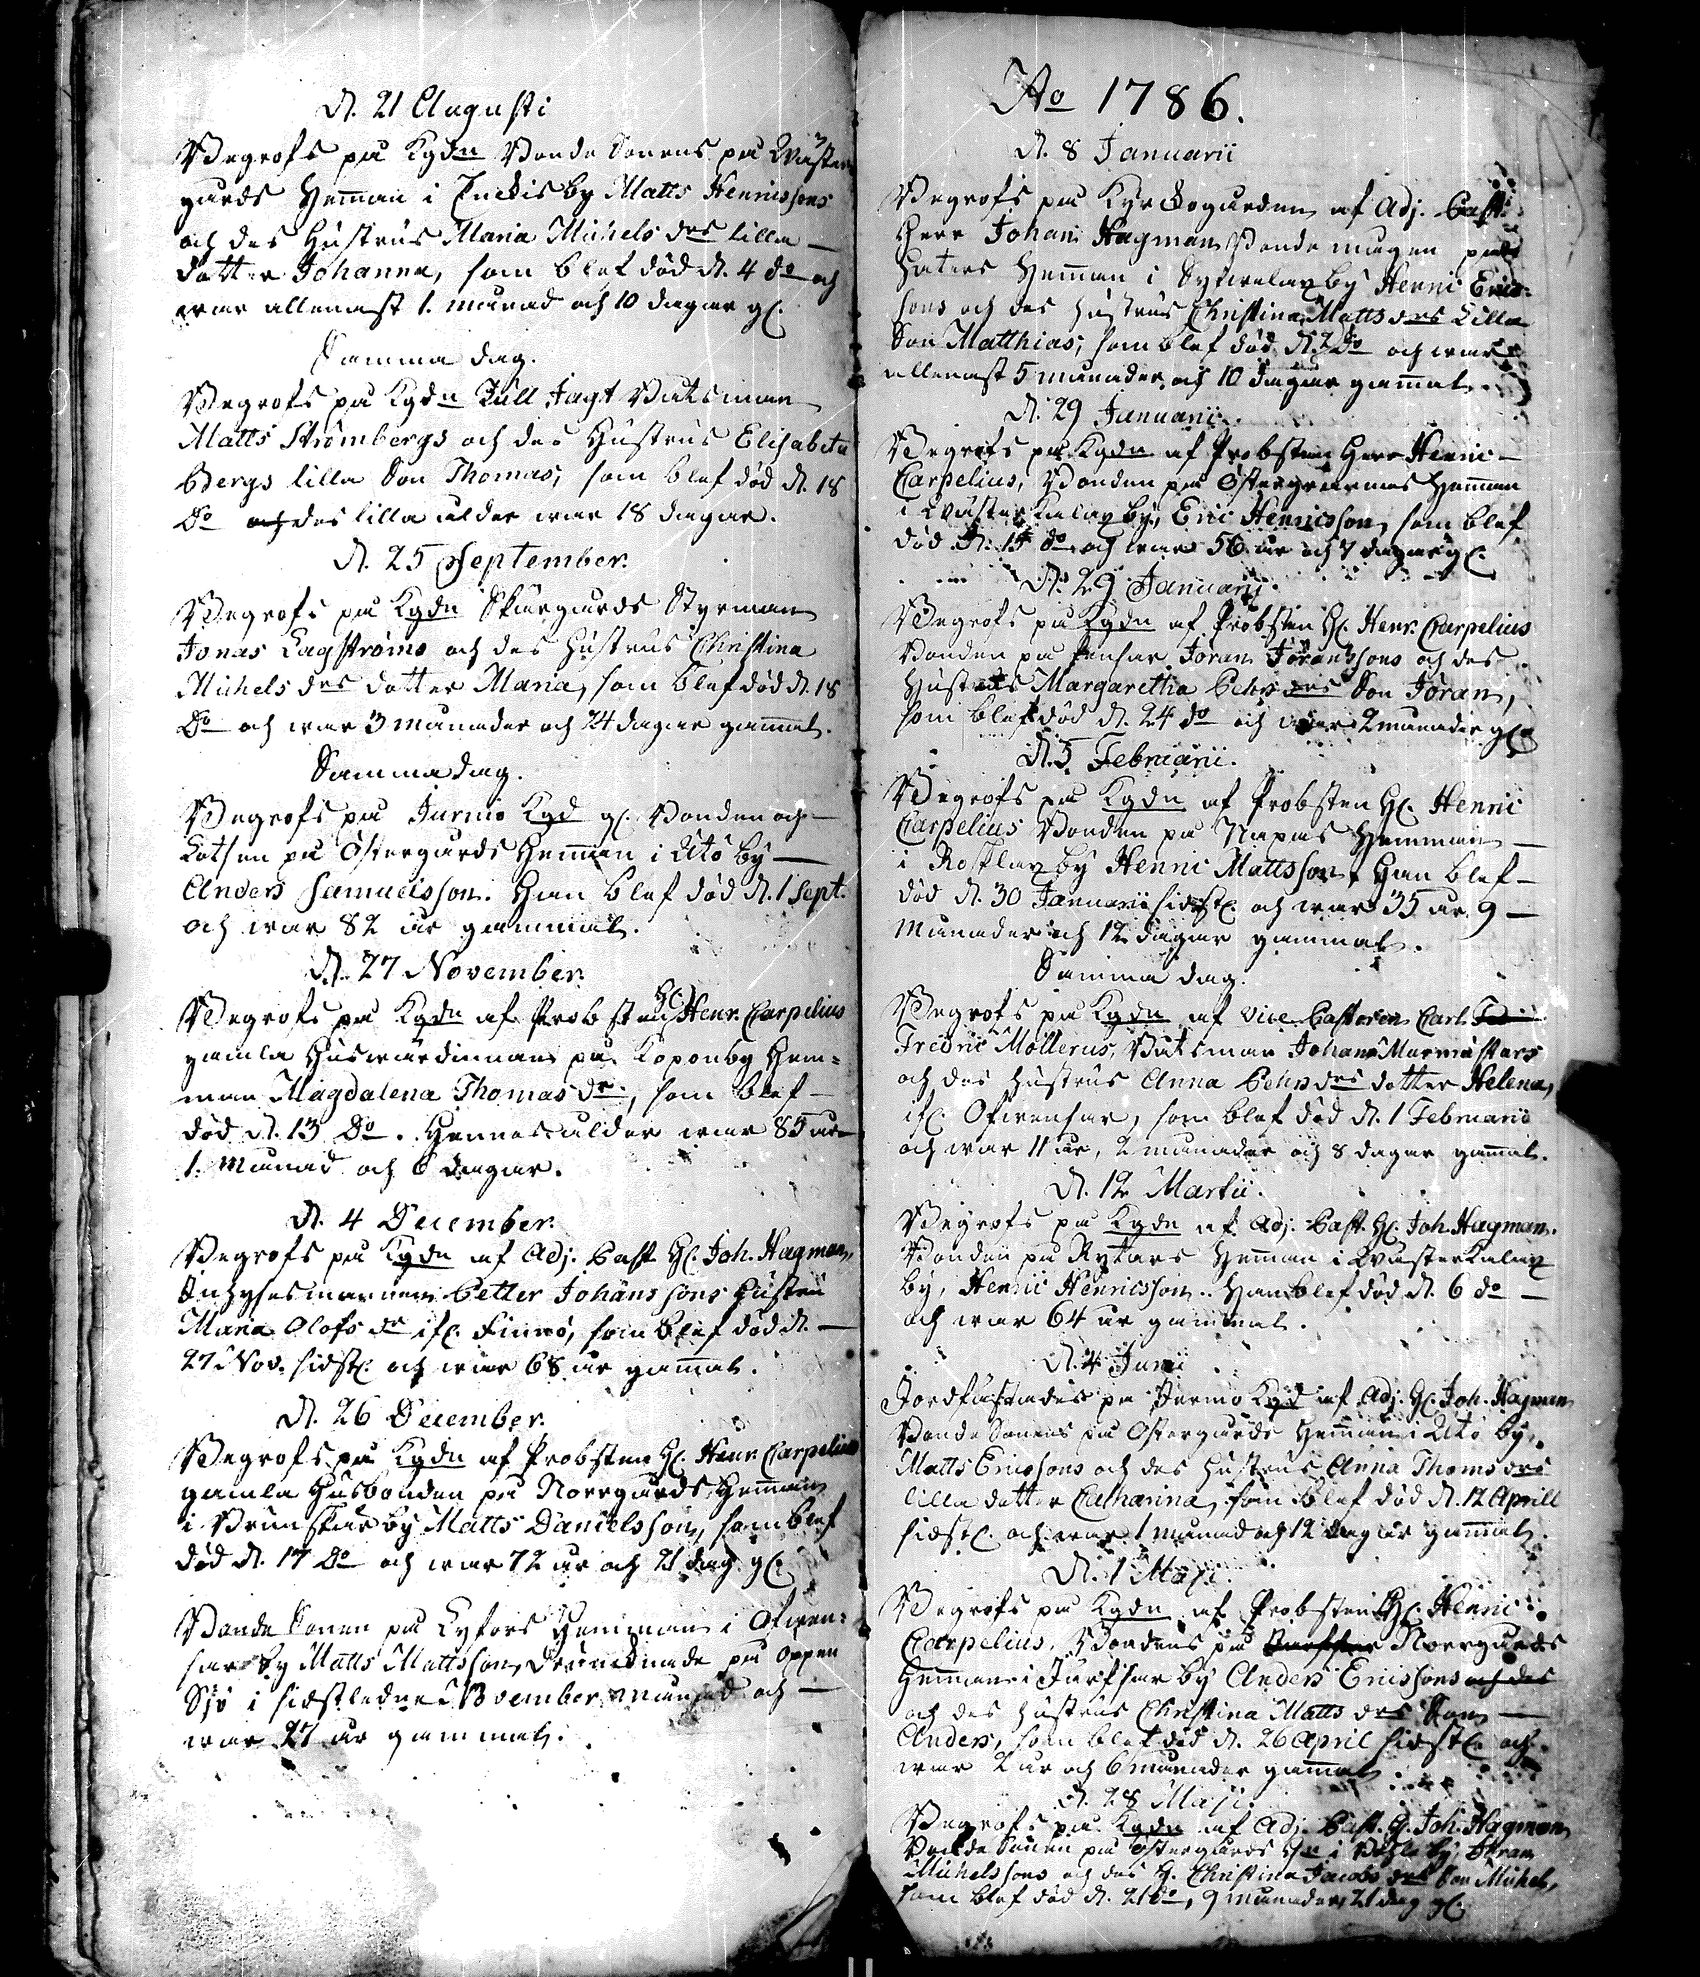 d. 21 Augusti
Begrofs på Kgdn Bonde Sonens på Wäster
gårds Hemman i Enckisby Matts Henricssons
och des Hustrus Maria Michels drs lilla
dotter Johanna, som blef död d. 4 do och
war allenast 1. månad och 10 dagar gl.
Samma dag.
Begrofs på Kgdn Tull Jagt Båtsman
Matts Strömbergs och des Hustrus Elisabeta
Bergs lilla Son Thomas, som blef död d. 18
Do och des lilla ålder war 18 dagar.
d. 25 September.
Begrofs på Kgdn Skärgårds Styrman
Jonas Lagströms och des Hustrus Christina
Michels drs dotter Maria, som blef död d. 18
Do och war 3 månader och 24 dagar gammal.
Samma dag.
Begrofs på Jurmo Kgd gl. Bonden och
Lotsen på Östergårds Hemman i Utö by
Anders Samuelsson. Han blef död d. 1 Sept.
och war 82 år gammal.
d. 27 November.
Begrofs på Kgdn af Probsten Hl. Henr. Carpelius
gamla Huswärdinnan på Koponby Hem=
man Magdalena Thomas dr, som blef
död d. 13 Do. Hennes ålder war 85 år
1. månad och 6 dagar.
d. 4 December.
Begrofs på Kgdn af Adj. Past. Hl. Joh. Hagman,
Inhysesmannen Petter Johanssons hustru
Maria Olofs dr ifl. Finnö, som blef död d.
27 Nov. sidstl. och war 68 år gammal.
d. 26 December.
Begrofs på Kgdn af Probsten Hl. Henr. Carpelius
gamla Husbonden på Norrgårds Hemman
i Brunskär by Matts Danielsson, som blef
död d. 17 Do och war 72 år och 21 dag. gl.
Bonde Sonen på Lyfors Hemman i Ofwen=
sar by Matts Mattsson, Drunknade på Oppen
Sjö i sidstledne November månad och
war 27 år gammal.
Ao 1786.
d. 8 Januarii
Begrofs på Kyrckogården af Adj. Past.
Herr Johan Hagman Bonde mågen på
Hemman i by Henric Erics=
sons och des hustrus Christina Matts drs Lilla
Son Matthias, som blef död d. 2 do och war
allenast 5 månader och 10 dagar gammal.
d. 29 Januarii.
Begrofs på Kgdn af Probsten Herr Henric
Carpelius, Bonden på Hemman
i Wäster Kalax by, Eric Henricsson, som blef
död d. 15 do och war 56 år och 7 dagar gl.
d. 29 Januarii.
Begrofs på Kgdn af Probsten Hl. Henr. Carpelius
Bonden på Jöran Jöranssons och des
Hustrus Margaretha Pehrs drs Son Jöran,
som blef död d. 24 do och war 2 månader gl.
d. 5 Februarii.
Begrofs på Kgdn af Probsten Hl. Henric
Carpelius Bonden på Napas Hemman
i Rosklax by Henric Mattsson, Han blef
död d. 30 Januarii sidstl. och war 35 år 9
Månader och 12 dagar gammal.
Samma dag.
Begrofs på Kgdn af Vice Pastoren Carl
Fredric Mollerus, Båtsman Johan Murmästars
och des hustrus Anna Pehrs drs dotter Helena,
ifl. Ofwensar, som blef död d. 1 Februarii
och war 11 år, 2 månader och 8 dagar gammal.
d. 12 Martii.
Begrofs på Kgdn af Adj. Past. Hl. Joh. Hagman.
Bonden på Rytars Hemman i Wäster Kalax
by, Henric Henricsson.. Han blef död d. 6 do
och war 64 år gammal.
d. 4 Junii
Jordfästades på Jurmo Kgd af Adj. Hl. Joh. Hagman
Bonde Sonens på Östergårds Hemman i Utö by,
Matts Ericssons och des hustrus Anna Thoms drs
lilla dotter Catharina, som blef död d. 12 Aprill
sidstl. och war 1 månad och 12 dagar gammal.
d. 1 Maji.
Begrofs på Kgdn af Probsten Hl. Henric
Carpelius, Bondens på Norrgårds
Hemman i by Anders Ericssons och des
och des hustrus Christina Matts drs Son
Anders, som blef död d. 26 April sidstl. och
war 2 år och 6 månader gammal.
d. 28 Maji.
Begrofs på Kgdn af Adj. Past. Hl. Joh. Hagman
Bonde Sonen på Östergårds i by,
Michelssons och des H. Christina Jacobs drs Son Michel,
som blef död d. 21 do, 9 månader 21 dag gl.